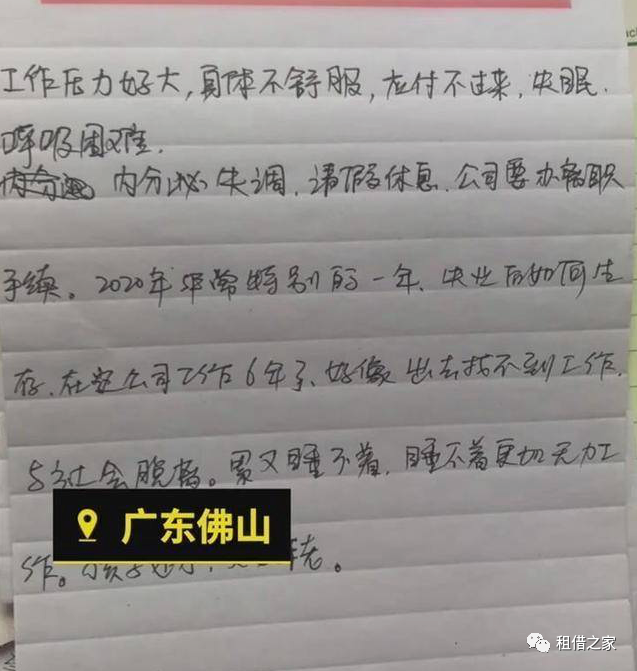 工作压力好大,身体不舒服,应付不过来,失眠.
呼吸困难.
内分泌失调.请假休息.公司要办离职
手续。2020年非常特别的一年、失业后如何生
存.在这公司工作6年了、好像出去找不到工作.
与社会脱离。累又睡不着,睡不着更加无力工
作。
广东佛山
租借之家